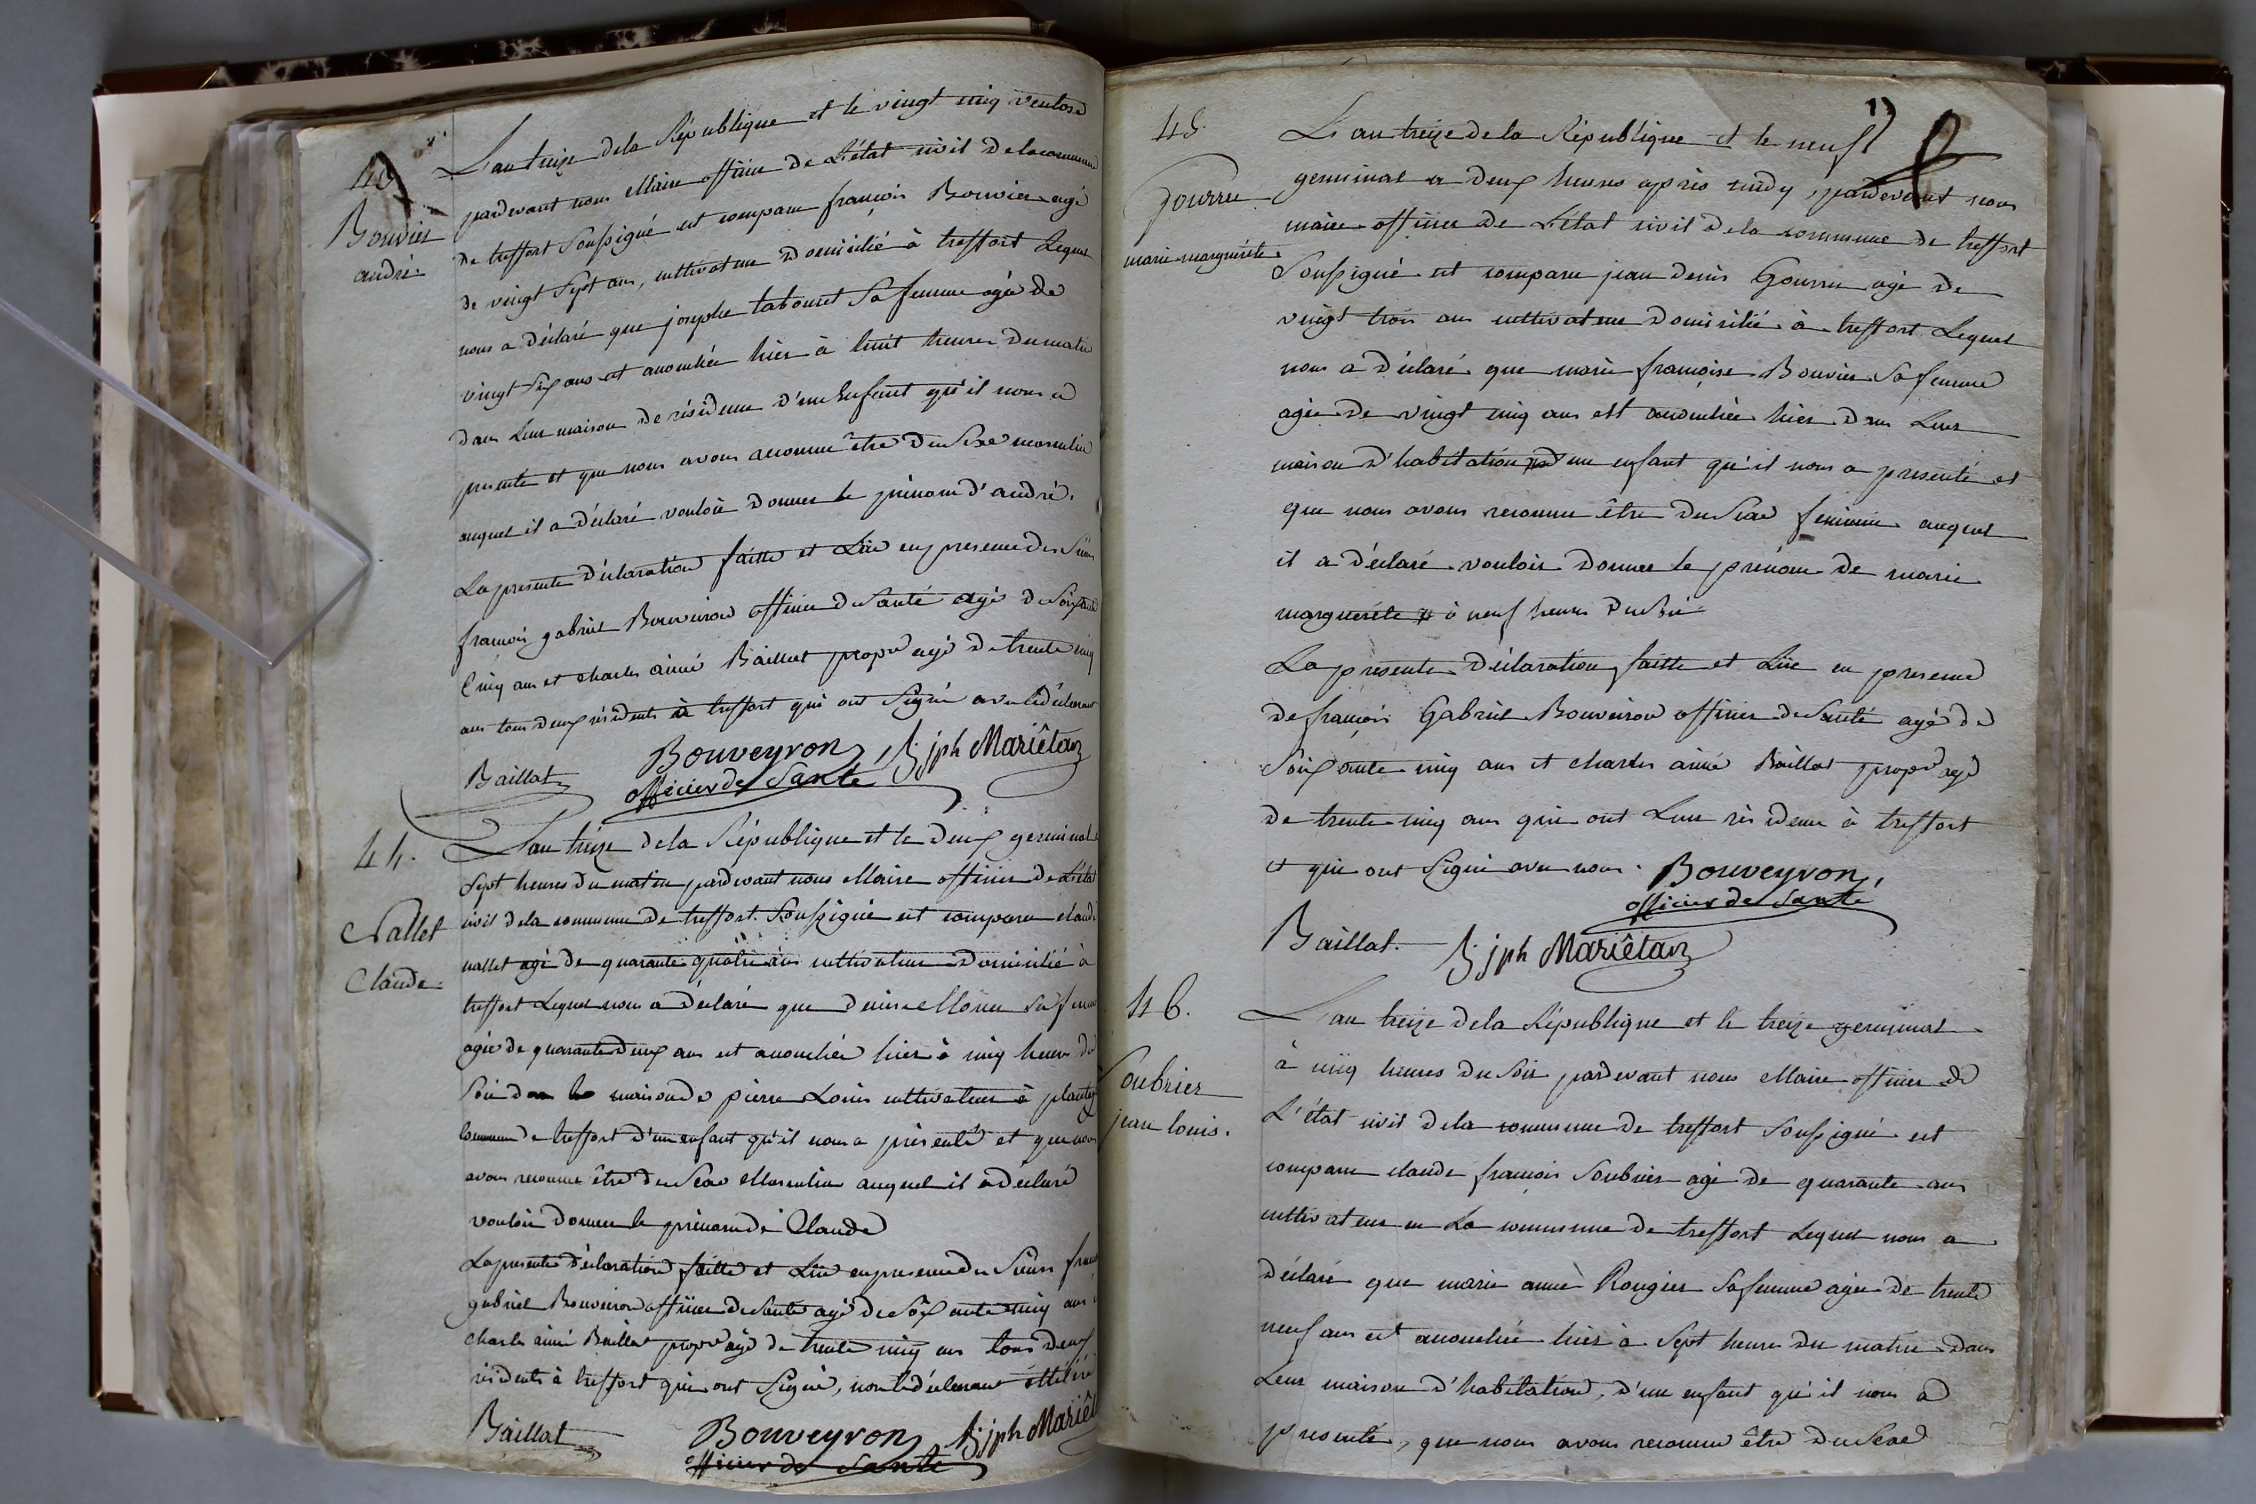 43
Bouvier
andré.
L'an treize de la République et le vingt cinq ventose
pardevant nous Maire officier de L'état civil de la commune
de treffort Soussigné est comparu françois Bouvier agé
de vingt Sept ans, cultivateur domicilié à treffort Lequel
nous a déclaré que josephe tabouret Sa femme agée de
vingt Six ans est accouchée hier à huit heures du matin
dans Leur maison de résidence d'un Enfant qu'il nous a
presenté et que nous avons reconnu être du Sexe masculin
auquel il a déclaré vouloir donner le prénom d'andré.
La presente déclaration faitte et Lüe en presence des Sieurs
francois gabriel Bouveiron officier de Santé agé de Soixante
Cinq ans et charles aimé Baillat propre agé de trente cinq
ans tous deux résidents à treffort qui ont Signé avec le déclarant
Baillat Bouveyron, officier de Santé jph Mariêtan
44.
Nallet
Claude.
L'an treize de la République et le deux germinal
Sept heures du matin pardevant nous Maire officier de L'état
civil de la commune de treffort Soussigné est comparu claude
nallet agé de quarante quatre ans cultivateur domicilié à
treffort Lequel nous a déclaré que denise Sa femme
agée de quarante deux ans est accouchée hier à cinq heures du
Soir dans la maison de pierre Louis cultivateur à
commune de treffort d'un enfant qu'il nous a présenté et que nous
avons reconnu être du Sexe Masculin auquel il a déclaré
vouloir donner le prénom de Claude
La presente déclaration faitte et Lüe en presence des Sieurs
gabriel Bouveiron officier de Santé agé de Soixante cinq ans
charles aimé Baillat propre agé de trente cinq ans tous deux
résidents à treffort qui ont Signé, non le déclarant
Baillat Bouveyron officier de Santé jph Mariêt
45.
gourru
marie marguerite.
L'an treize de la République et le neuf
germinal a deux heures après midy, pardevant nous
maire officier de L'état civil de la commune de treffort
Soussigné est comparu jean denis Gourru agé de
vingt trois ans cultivateur domicilié à treffort Lequel
nous a déclaré que marie françoise Bouvier Sa femme
agée de vingt cinq ans est accouchée hier dans Leur
maison d'habitation d'un enfant qu'il nous a presenté et
que nous avons reconnu être du Sexe feminin auquel
il a déclaré vouloir donner le prénom de marie
marguerite à neuf heures du Soir
La presente déclaration faitte et Lüe en presence
de françois Gabriel Bouveiron officier de Santé agé de
Soixante cinq ans et charles aimé Baillat propre agé
de trente cinq ans qui ont Leur résidence à treffort
et qui ont Signé avec nous. Bouveyron, officier de Santé
Baillat. jph Mariêtan
46.
Soubrier
jean louis.
L'an treize de la République et le treize germinal
à cinq heures du Soir pardevant nous Maire officier de
L'état civil de la commune de treffort Soussigné est
comparu claude françois Soubrier agé de quarante ans
cultivateur en La commune de treffort Lequel nous a
déclaré que marie anne Rongier Sa femme agée de trente
neuf ans est accouchée hier à Sept heures du matin dans
Leur maison d'habitation, d'un enfant qu'il nous a
presenté, que nous avons reconnu être du Sexe